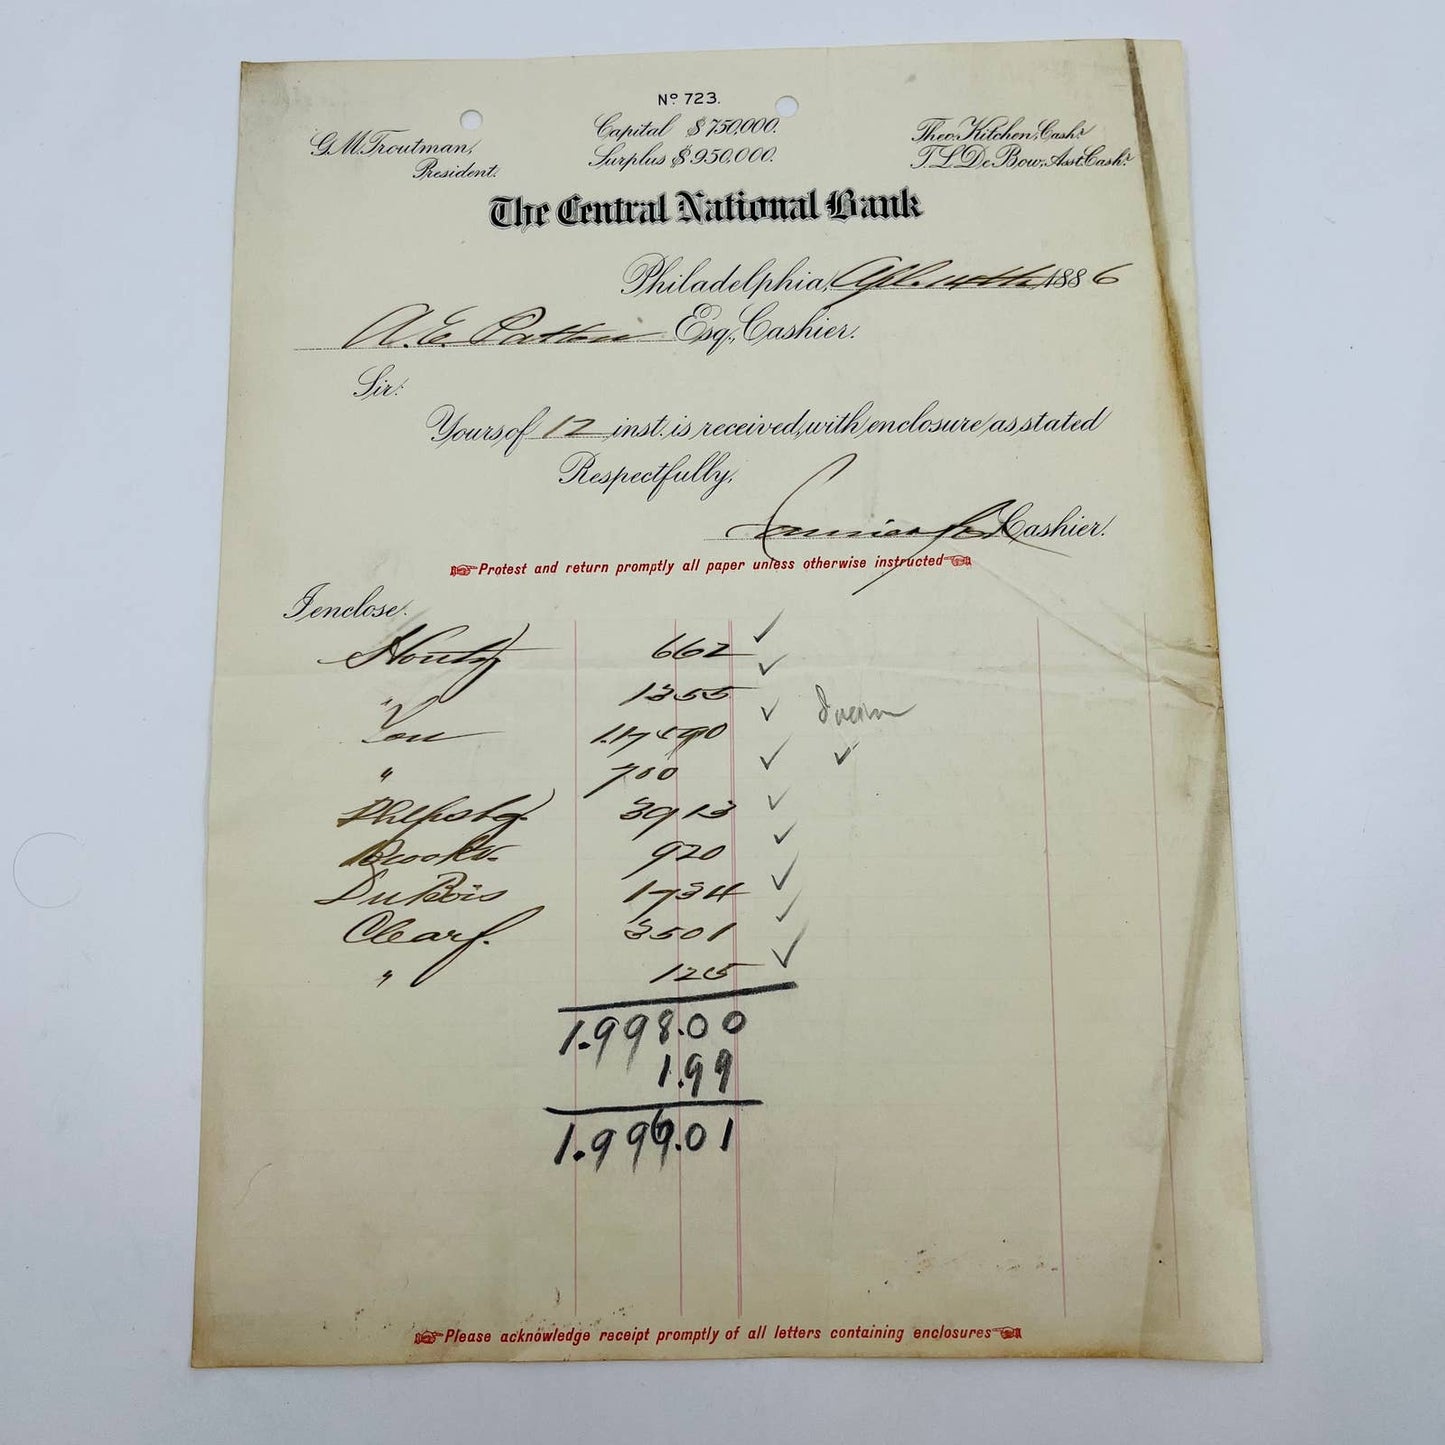 Nº 723.
G.M. Troutman, President.
Capital $750,000.
Surplus $950,000.
Theo. Kitchen, Cashr.
T. L. De Bow, Asst. Cashr.
The Central National Bank
Philadelphia, Apl. 14th 1886
A. E. Patton Esq., Cashier.
Sir:
Yours of 12 inst. is received, with enclosure as stated
Respectfully,
Cashier.
Protest and return promptly all paper unless otherwise instructed
I enclose.
Houtz 662
" 1355
You
" 700
Philipsbg. 3913
Brookv. 920
DuBois 1734
Clearf. 3501
" 125
1.998.00
1.99
1.996.01
Please acknowledge receipt promptly of all letters containing enclosures